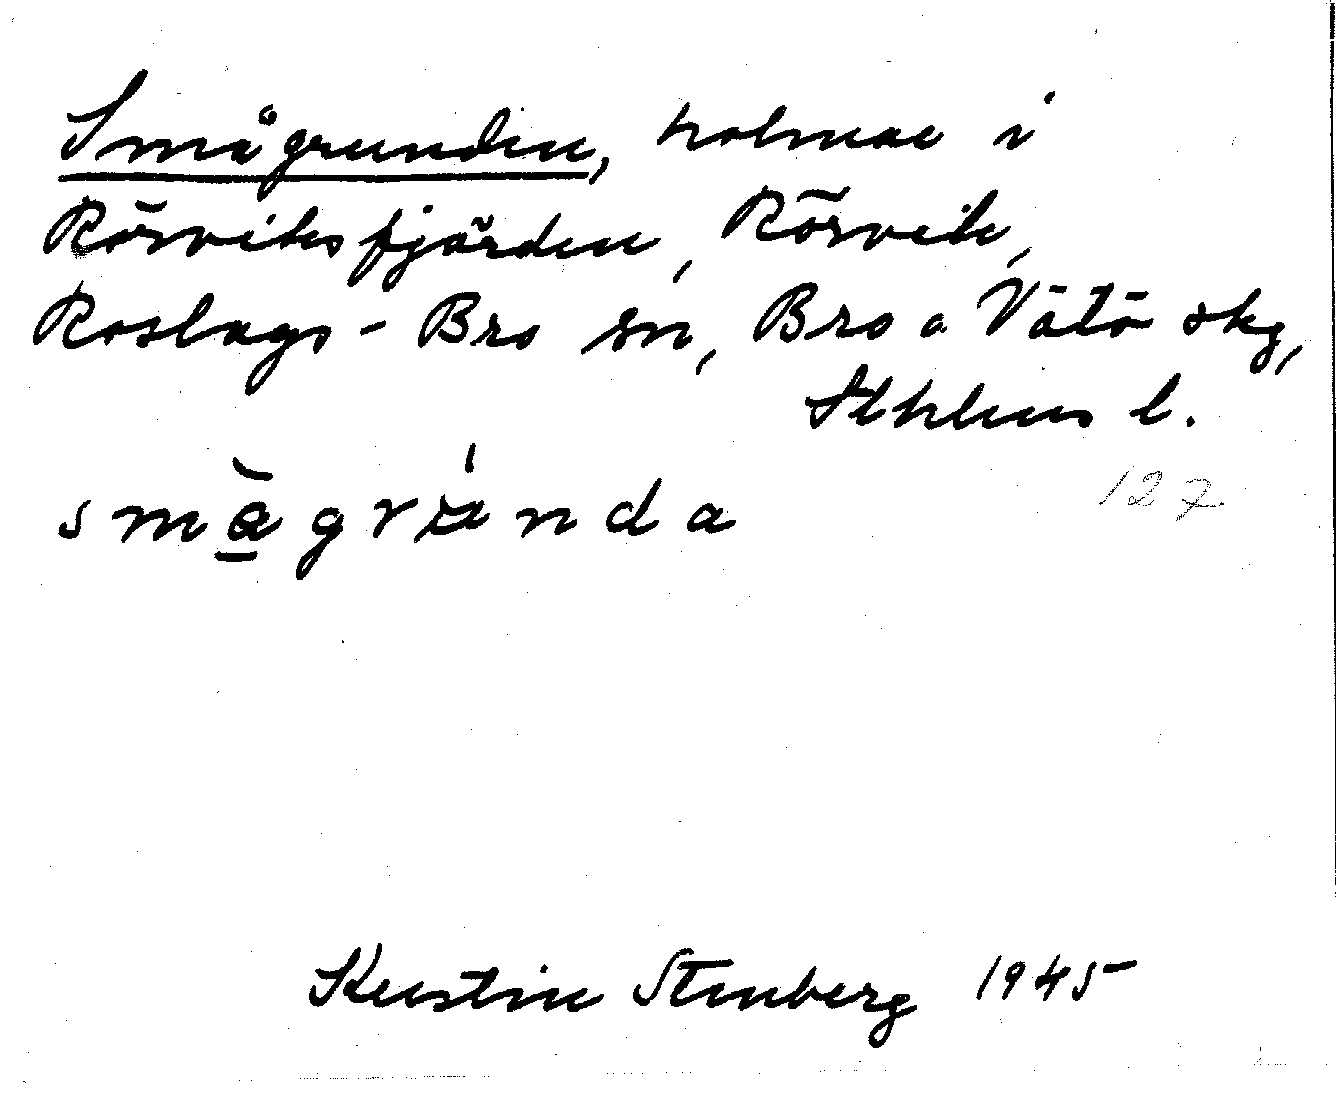 Smågrunden, holmar i
Rörviksfjärden, Rörvik,
Roslags-Bro sn, Bro o Vätö skg,
Sthlms l.
127
smågrunda
Kerstin Stenberg 1945